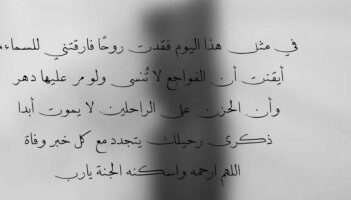 في مثل هذا اليوم فقدت روحًا فارقتني للسماء،
أيقنت أن الفواجع لا تُنسى ولو مر عليها دهر
وأن الحزن على الراحلين لا يموت أبدا
ذكرى رحيلك يتجدد مع كل خبر وفاة
اللهم ارحمه واسكنه الجنة يارب